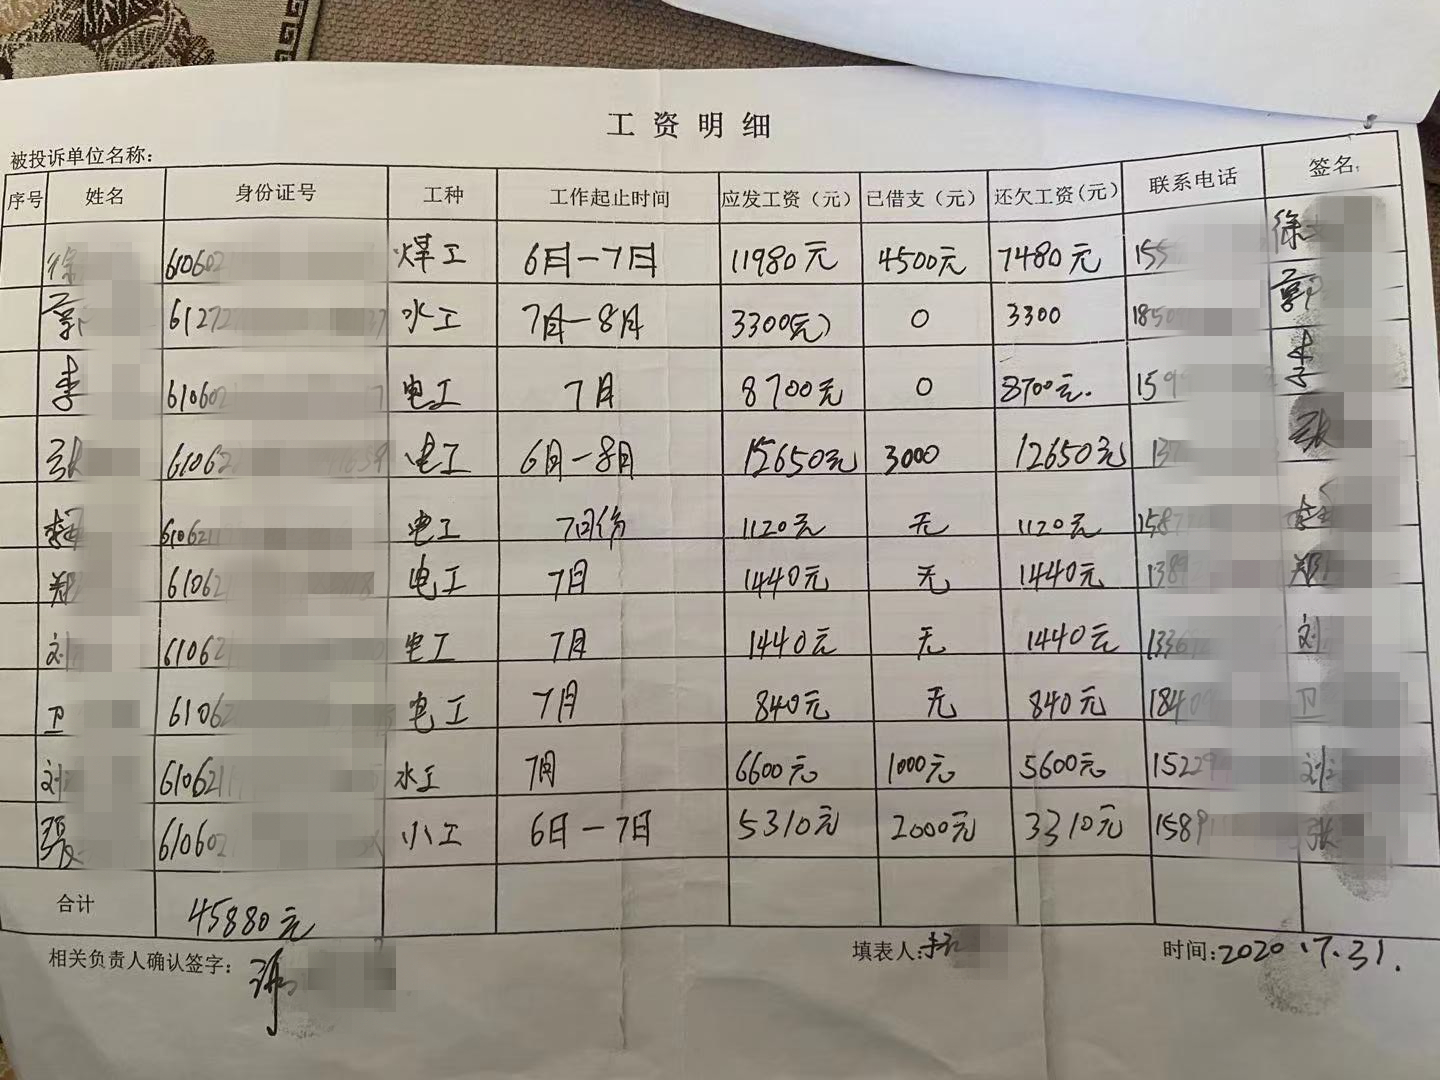 工资明细
被投诉单位名称：
序号 姓名 身份证号 工种 工作起止时间 应发工资（元） 已借支（元） 还欠工资(元) 联系电话 签名：
徐 610602 煤工 6日－7日 11980元 4500元 7480元 155 徐
郭 6127 水工 7月－8月 3300(元) 0 3300 1850 郭
李 610602 电工 7月 8700元 0 8700元. 159 李
张 61062 电工 6月－8月 15650元 3000 12650元 137 张
610621 电工 7月份 1120元 无 1120元 1587
郑 61062 电工 7月 1440元 无 1440元 138 郑
刘 61062 电工 7月 1440元 无 1440元 1336 刘
卫 61062 电工 7月 840元 无 840元 1840 卫
刘 610621 水工 7月 6600元 1000元 5600元 1522 刘
张 610602 小工 6日－7日 5310元 2000元 3310元 1589 张
合计 45880元
相关负责人确认签字： 填表人: 时间:2020.7.31.